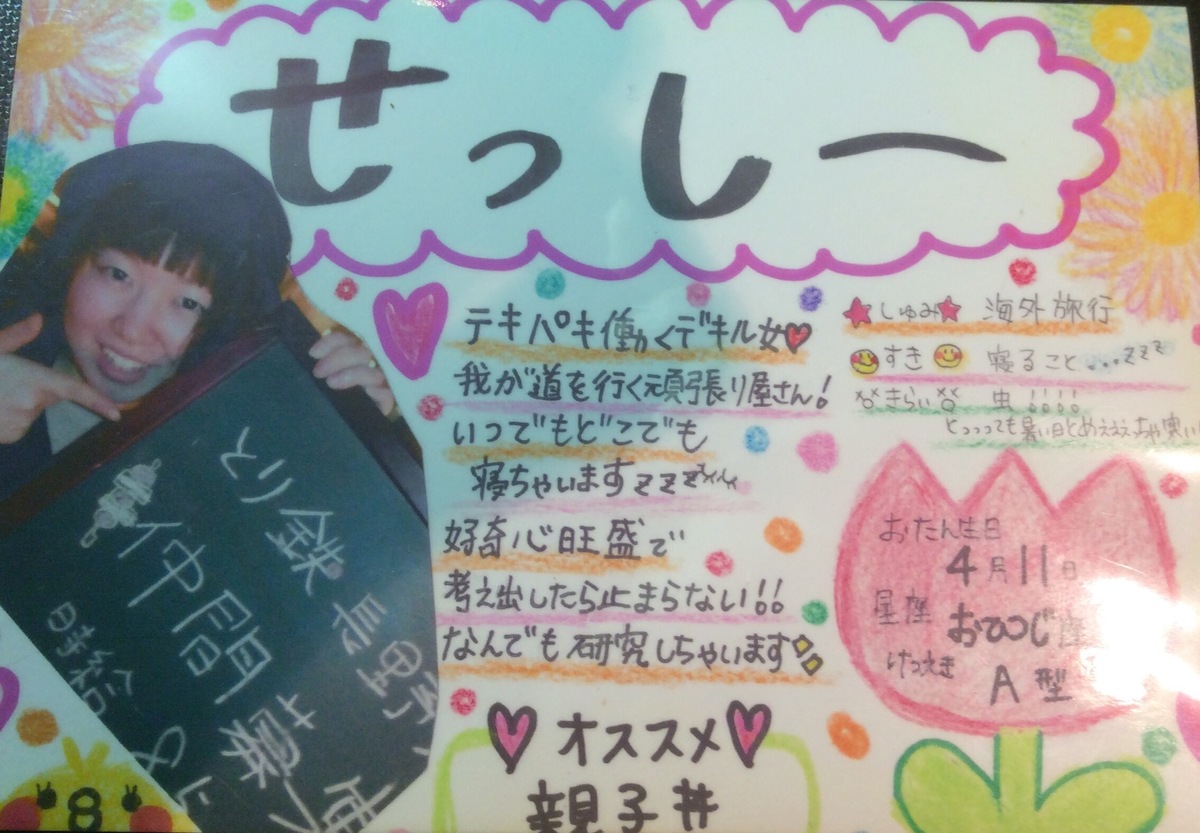 せっしー
テキパキ働くデキル女
我が道を行く頑張り屋さん!
いつでもどこでも
寝ちゃいますzzz
好奇心旺盛で
考え出したら止まらない!!
なんでも研究しちゃいます
オススメ
親子丼
しゅみ 海外旅行
すき 寝ること...zzz
きらい 虫!!!!
とっっっても暑い日とめえええっちゃ寒い
おたん生日
4月11日
星座
おひつじ座
けつえき
A型
とり鉄
仲間募
時給